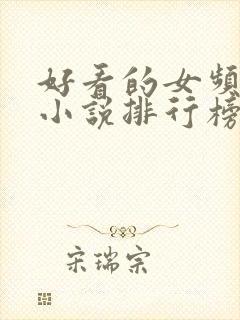 好看的女频
小说排行榜
宋瑞宗